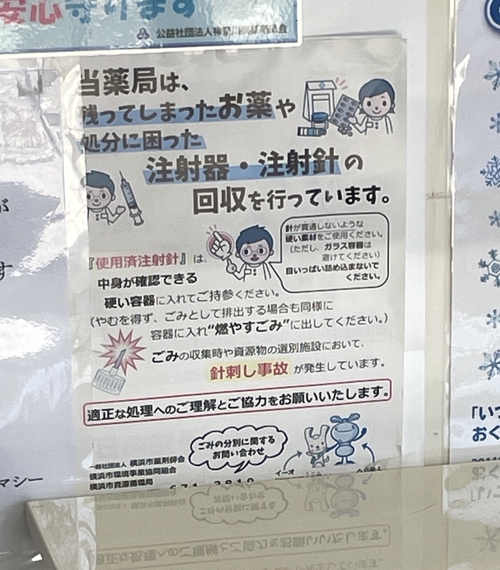 安心守ります
公益社団法人神奈川県薬剤師会
当薬局は、
残ってしまったお薬や
処分に困った
注射器・注射針の
回収を行っています。
針が貫通しないような
硬い素材をご使用ください。
(ただし、ガラス容器は
避けてください)
目いっぱい詰め込まないで
ください。
『使用済注射針』は、
中身が確認できる
硬い容器に入れてご持参ください。
(やむを得ず、ごみとして排出する場合も同様に
容器に入れ“燃やすごみ”に出してください。)
ごみの収集時や資源物の選別施設において、
針刺し事故が発生しています。
適正な処理へのご理解とご協力をお願いいたします。
ごみの分別に関する
お問い合わせ
一般社団法人 横浜市薬剤師会
横浜市環境事業協同組合
横浜市資源循環局
イーオ
が
す
マシー
「いつ
おく